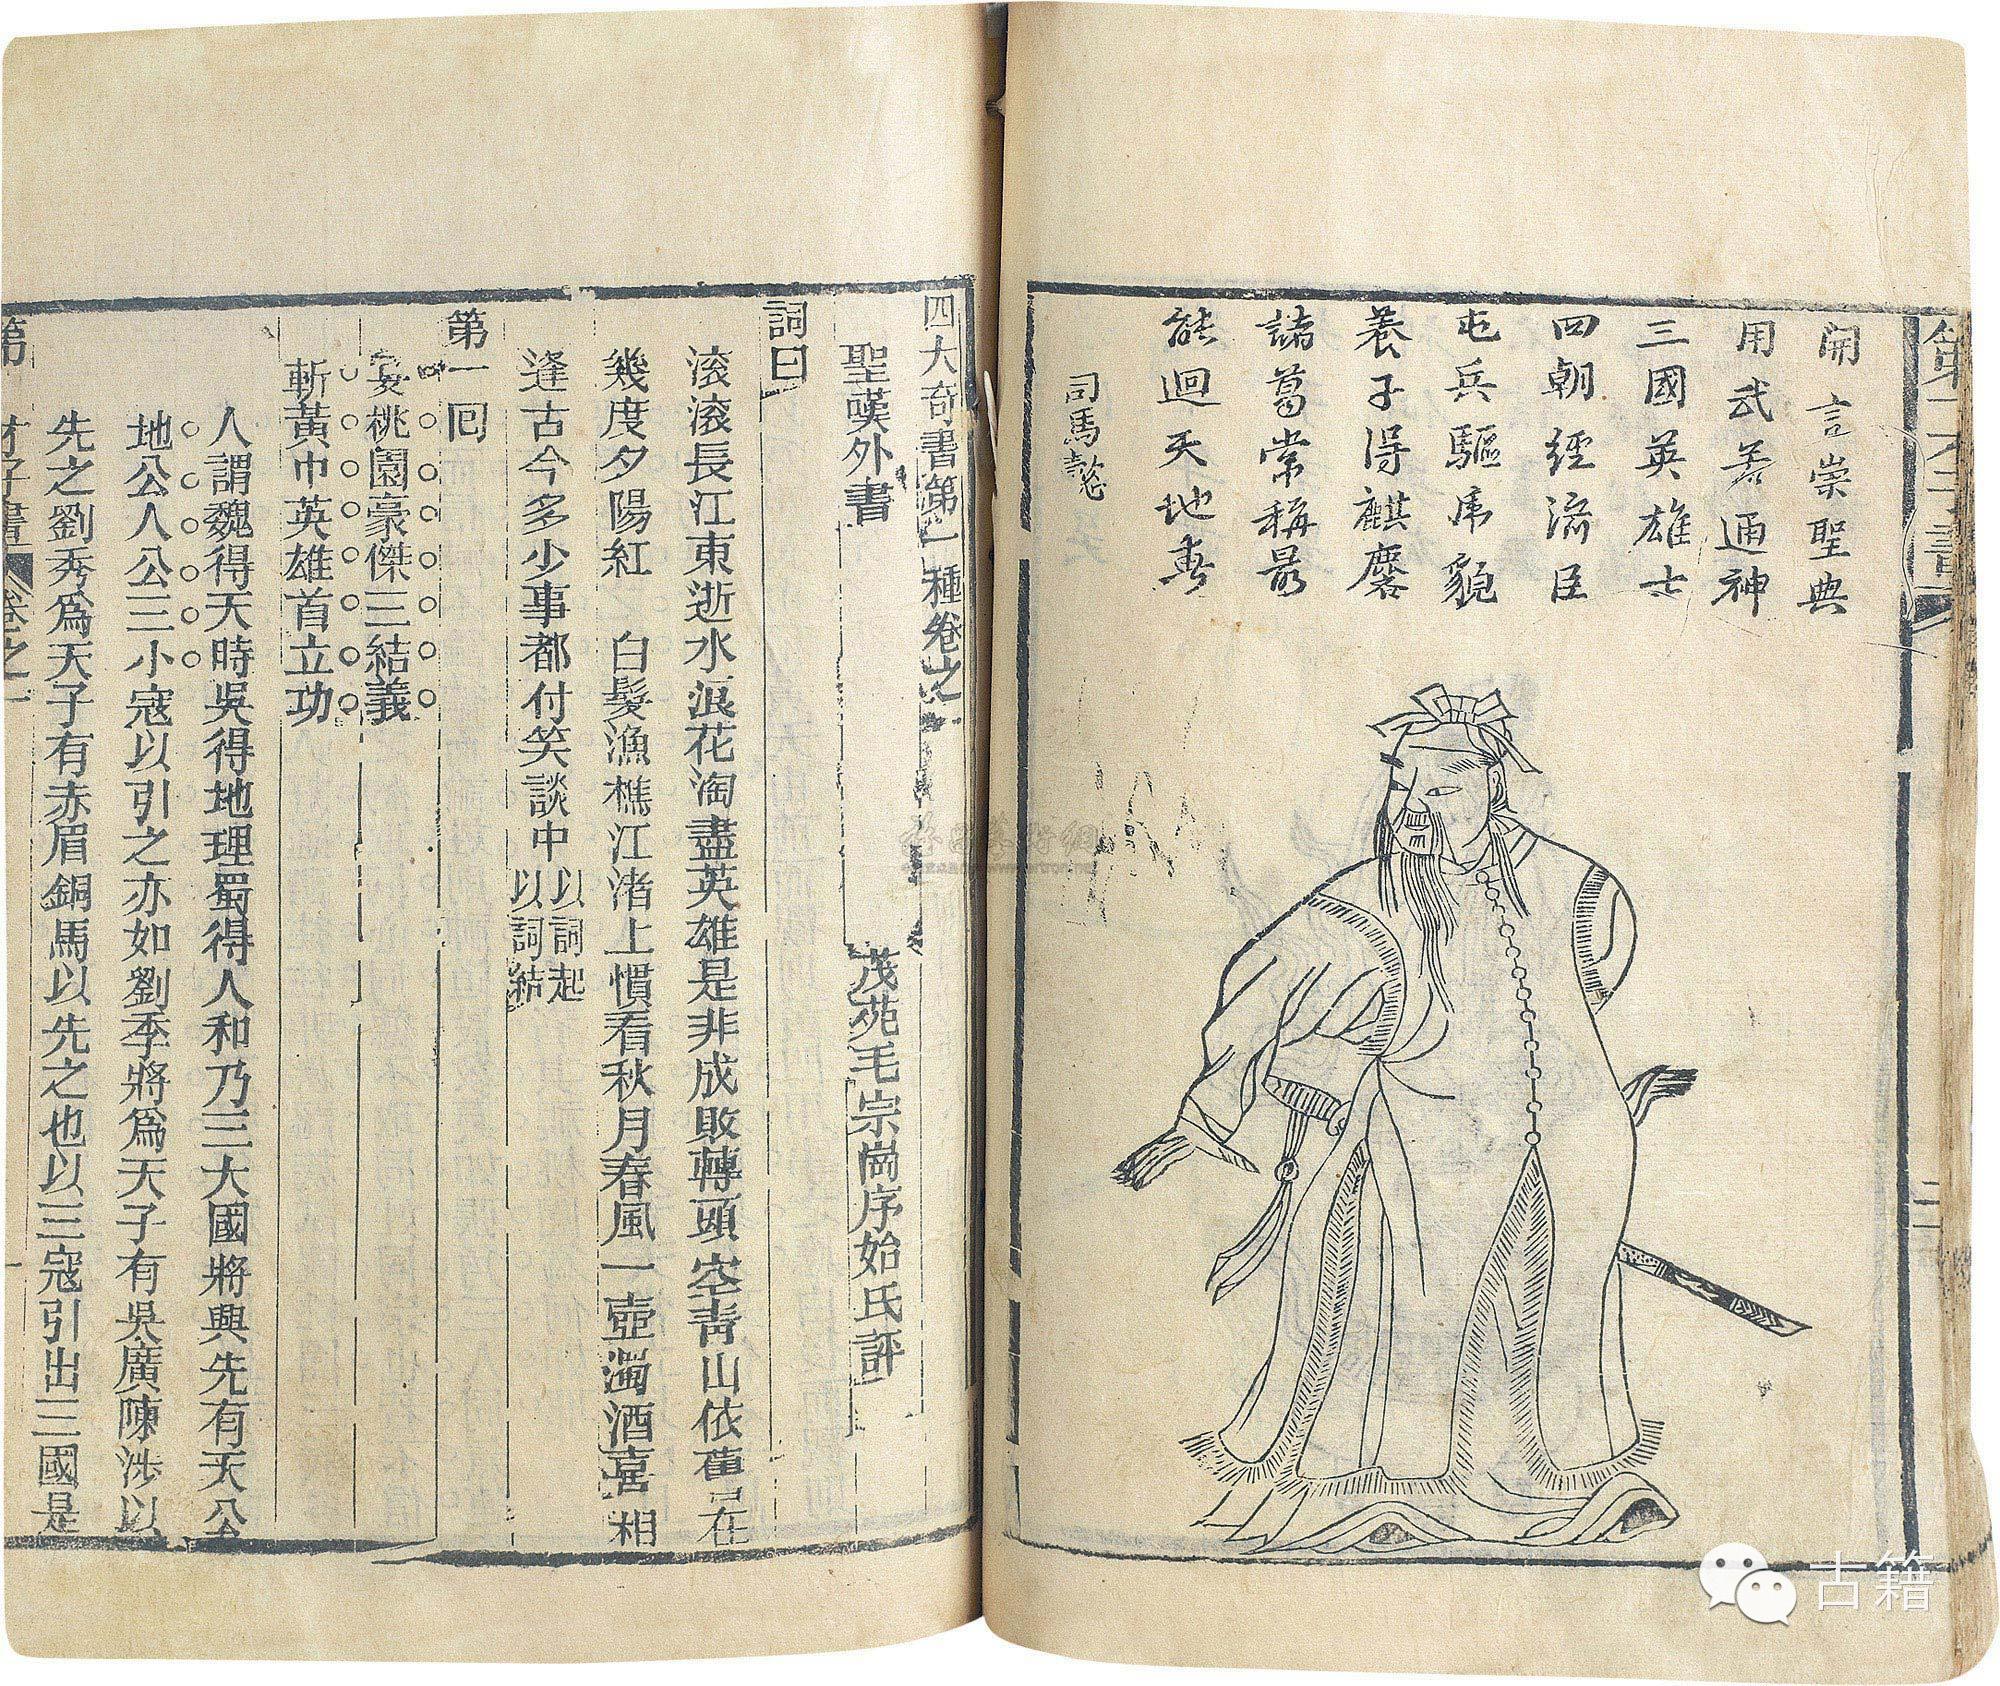 開言崇聖典
用武若通神
三國英雄士
四朝經濟臣
屯兵驅虎貔
養子得麒麐
諸葛常稱最
能迴天地春
司馬懿
四大奇書第一種卷之一
聖嘆外書
茂苑毛宗崗序始氏評
詞曰
滚滚長江東逝水浪花淘盡英雄是非成敗轉頭空青山依舊在
幾度夕陽紅 白髮漁樵江渚上慣看秋月春風一壺濁酒喜相
逢古今多少事都付笑談中
以詞起
以詞結
第一回
宴桃園豪傑三結義
斬黃巾英雄首立功
人謂魏得天時吳得地理蜀得人和乃三大國將興先有天公
地公人公三小寇以引之亦如劉季將爲天子有吳廣陳涉以
先之劉秀爲天子有赤眉銅馬以先之也以三寇引出三國是
第一才子書
卷之一
二
古籍